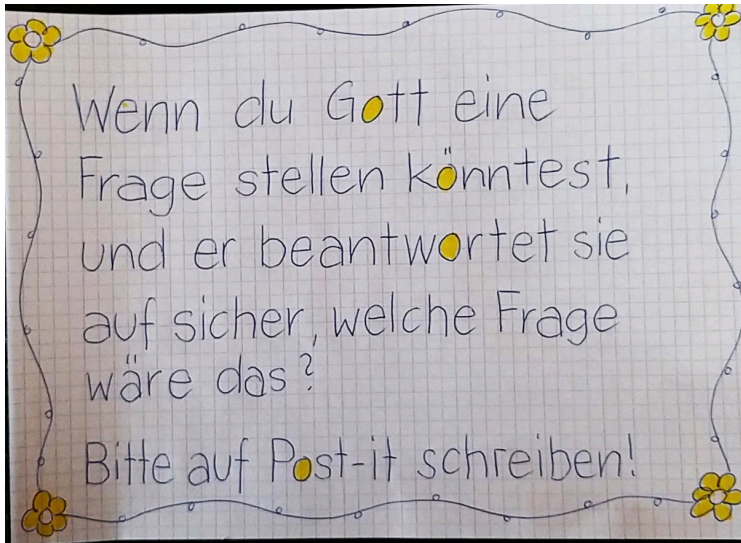 Wenn du Gott eine
Frage stellen könntest,
und er beantwortet sie
auf sicher, welche Frage
wäre das?
Bitte auf Post-it schreiben!